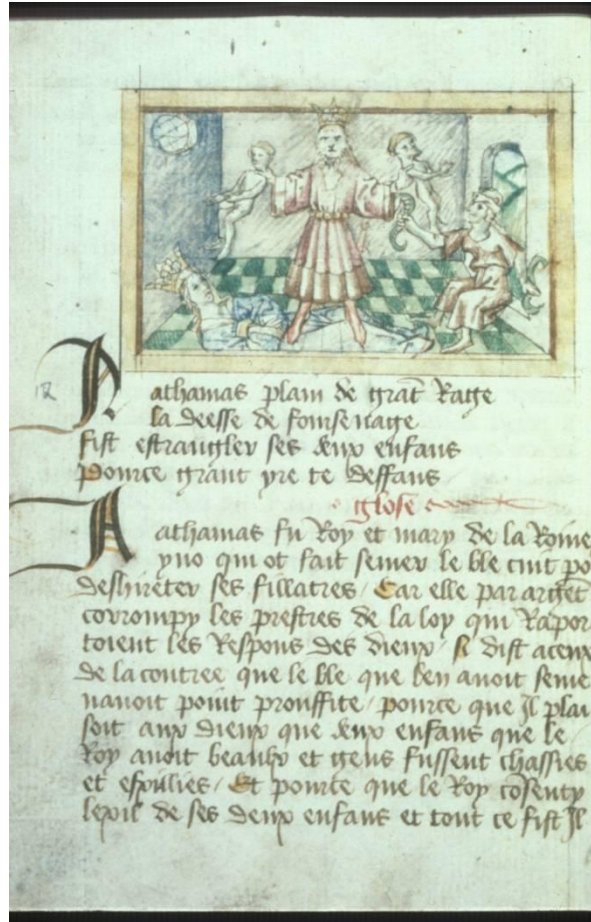 Athamas plain de grāt Rage
la deesse de foursenage
fist estrangler ses deux enfans
pource grant yre te deffans
glose
Athamas fu Roy et mary de la Roine
yno qui ot fait semer le ble cuit po
desh&iacute;reter ses fillatres / Car elle par argēt
corrompy les prestres de la loy qui Rapor
toient les Respons des dieux / si dist a ceux
de la contree que le ble que len auoit seme
nauoit point prouffite / pource que Il plai
soit aux dieux que deux enfans que le
Roy auoit beaulx et gens fussent chassies
et exillies / Et pource que le Roy cōsenty
lexil de ses deux enfans et tout ce fist Il